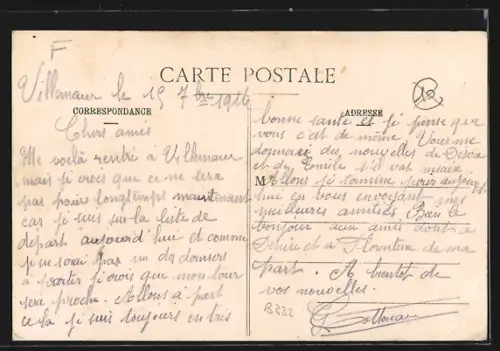 F
Villemaur le 15 7bre 1916
CARTE POSTALE
CORRESPONDANCE
Chers amis
Me voilà rentré à Villemaur
mais je crois que ce ne sera
pas pour longtemps maintenant
car je suis sur la liste de
départ aujourd'hui et comme
je ne serai pas un des derniers
à partir je crois que mon tour
sera proche. Allons à part
cela je suis toujours en très
ADRESSE
bonne santé et je pense que
vous c'est de même. Vous me
donnerez des nouvelles de
et de Emile s'il va mieux
M
Allons je termine pour aujour
hui en vous envoyant mes
meilleures amitiés. Bien le
bonjour aux amis dont à
Denise et à Florentine de ma
part. A bientot de
vos nouvelles.
B232